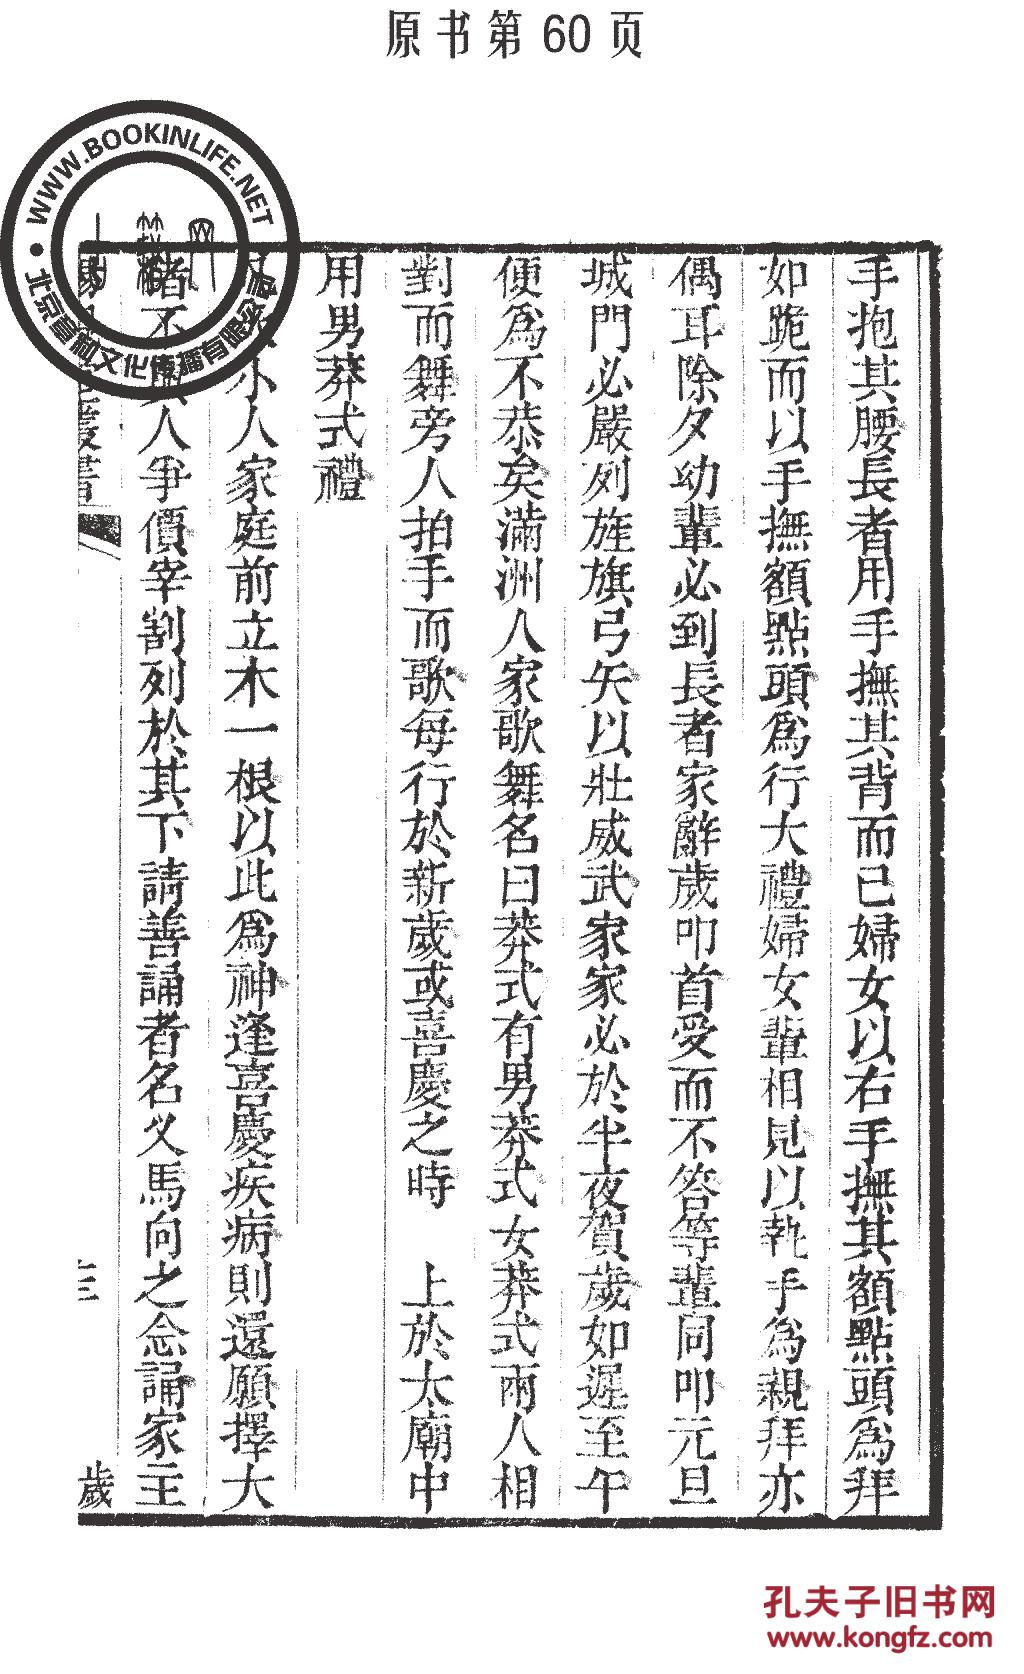 原书第60页
WWW.BOOKINLIFE.NET
手抱其腰長者用手撫其背而已婦女以右手撫其額點頭爲拜
如跪而以手撫額點頭爲行大禮婦女輩相見以執手爲親拜亦
偶耳除夕幼輩必到長者家辭歲叩首受而不答等輩同叩元旦
城門必嚴列旌旗弓矢以壯威武家家必於半夜賀歲如遲至午
便爲不恭矣滿洲人家歌舞名曰莽式有男莽式女莽式兩人相
對而舞旁人拍手而歌每行於新歲或喜慶之時 上於太廟中
用男莽式禮
小人家庭前立木一根以此爲神逢喜慶疾病則還願擇大
者不與人爭價宰割列於其下請善誦者名乂馬向之念誦家主
叢書 歲
孔夫子旧书网
www.kongfz.com